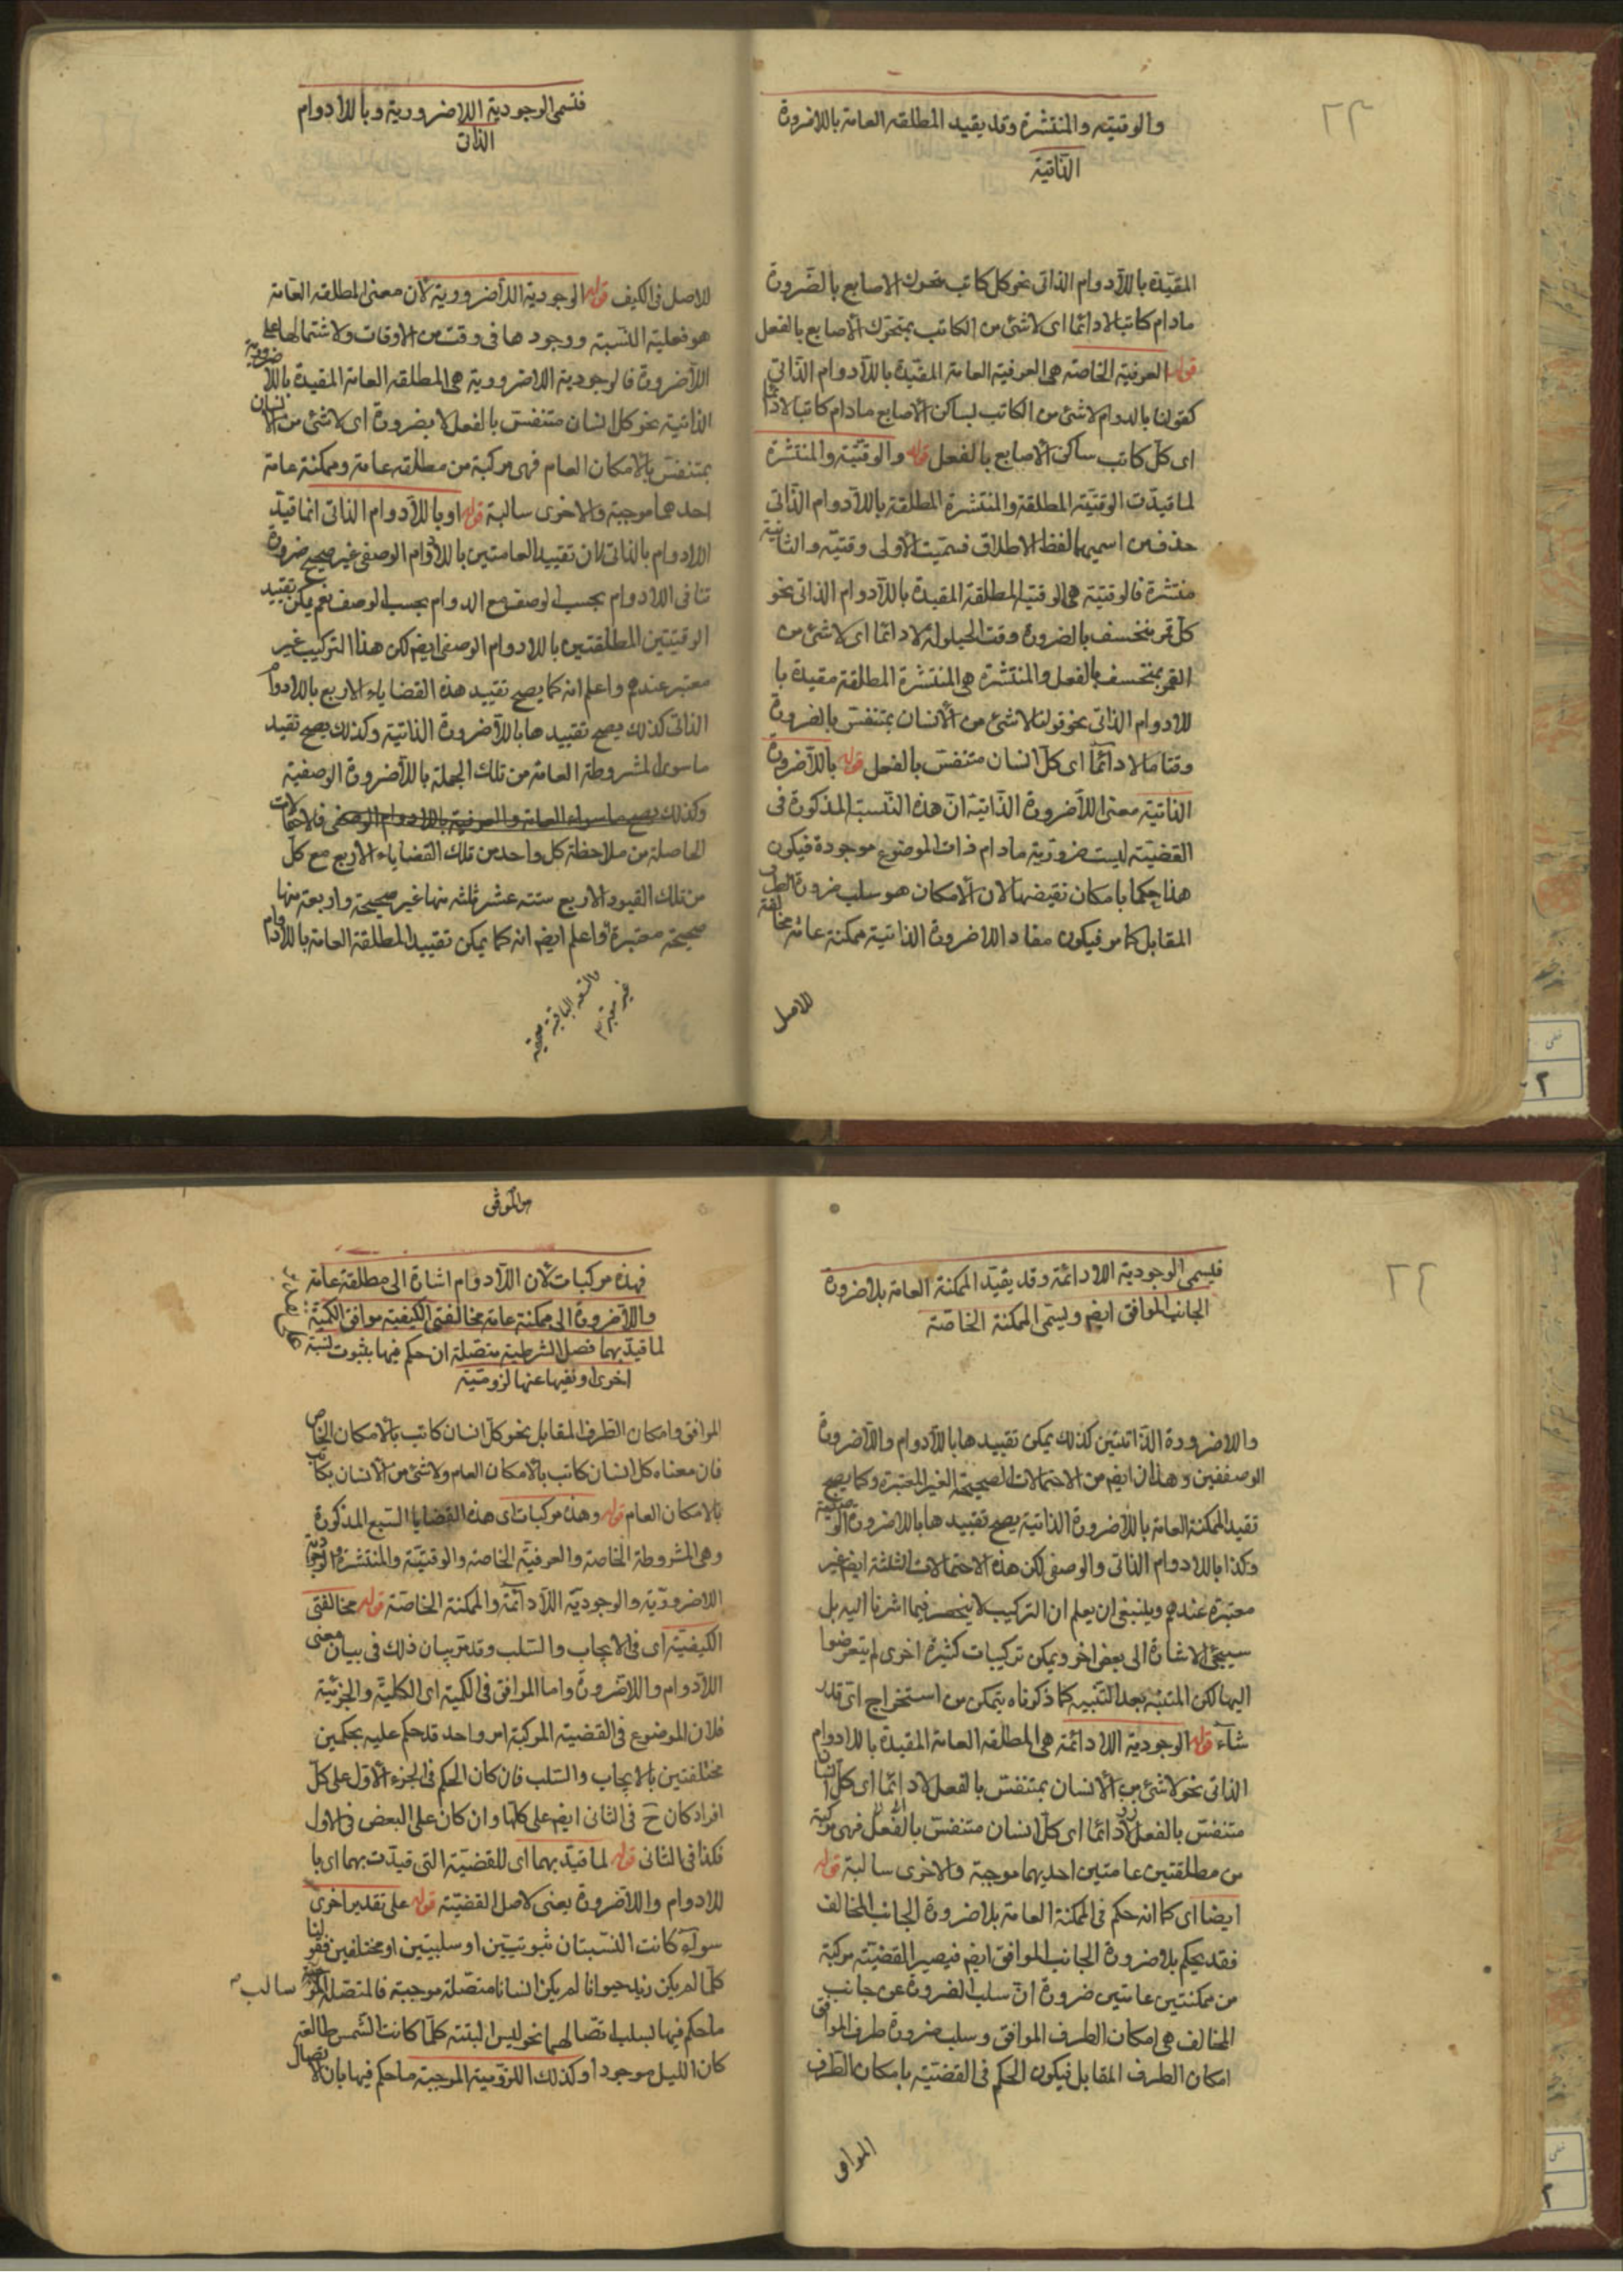 والوقتيته والمنتشرة وقد يقيد المطلقه العامة باللاضرورة
الذاتية
المقيّدة باللادوام الذاتى نحو كل كاتب متحرك الاصابع بالضرورة
مادام كاتبا لا دائما اى لا شئ من الكاتب بمتحرك الأصابع بالفعل
قوله العرفية الخاصة هى العرفية العامة المقيّدة باللادوام الذاتى
كقولنا بالدوام لا شئ من الكاتب بساكن الأصابع مادام كاتبا لا دائما
اى كلّ كاتب ساكن الأصابع بالفعل قوله والوقتيّة والمنتشرة
لما قيدت الوقتيّة المطلقة والمنتشرة المطلقة باللادوام الذّاتى
حذف من اسميهما لفظ الاطلاق فسميت الأولى وقتيّه والثانية
منتشرة فالوقتيّة هى الوقتية المطلقة المقيدة باللادوام الذاتى نحو
كلّ قمر منخسف بالضرورة وقت الحيلولة لا دائما اى لا شئ من
القمر بمنخسف بالفعل والمنتشرة هى المنتشرة المطلقة مقيدة با
للادوام الذاتى نحو قولنا لا شئ من الأنسان بمتنفس بالضرورة
وقتا ما لا دائما اى كلّ انسان متنفس بالفعل قوله باللاضرورة
الذاتية معنى اللاضرورة الذّاتية انّ هذه النّسبة المذكورة فى
القضيّة ليست ضرورية مادام ذات الموضوع موجودة فيكون
هذا حكما بامكان نقيضها لان الأمكان هو سلب ضرورة الطرف
المقابل كما مر فيكون مفاد اللاضرورة الذاتية ممكنة عامّة مخالفة
للاصل
فتسمى الوجودية اللاضرورية وباللادوام
الذاتى
للاصل فى الكيف قوله الوجودية اللاضرورية لأن معنى المطلقه العامة
هو فعلية النسبة ووجودها فى وقت من الاوقات ولاشتمالها على
اللاضرورة فالوجودية اللاضرورية هى المطلقه العامة المقيدة باللاضرورية
الذاتية نحو كل انسان متنفس بالفعل لا بضرورة اى لا شئ من الانسان
بمتنفس بالامكان العام فهى مركبة من مطلقة عامة وممكنة عامة
احدهما موجبة والاخرى سالبة قوله او باللادوام الذاتى انما قيدّ
اللادوام بالذاتى لان تقييد العامتين باللادوام الوصفى غير صحيح ضرورة
تنافى اللادوام بحسب الوصف مع الدوام بحسب الوصف نعم يمكن تقييد
الوقتيتين المطلقتين باللادوام الوصفى ايضا لكن هذا التركيب غير
معتبر عندهم واعلم انه كما يصح تقييد هذه القضايا الاربع باللادوام
الذاتى كذلك يصح تقييدها باللاضرورة الذاتية وكذلك يصح تقيد
ما سوى المشروطة العامة من تلك الجملة باللاضرورة الوصفية
وكذلك يصح ما سواء العامة والعرفية باللادوام الوصفى فالاحتمالات
الحاصلة من ملاحظة كل واحد من تلك القضايا الاربع مع كلّ
من تلك القيود الاربع ستة عشر ثلثه منها غير صحيحة واربعة منها
صحيحة معتبرة واعلم ايضا انه كما يمكن تقييد المطلقة العامة باللادوام
والتسعة الباقية صحيحة
غير معتبرة
فيسمى الوجودية اللادائمة وقد يقيّد الممكنة العامة بلا ضرورة
الجانب الموافق ايضا ويسمى الممكنة الخاصة
واللاضرورة الذّاتيتين كذلك يمكن تقييدها باللادوام واللاضرورة
الوصفيين وهذان ايضا من الاحتمالات الصحيحة الغير المعتبرة وكما يصح
تقيد الممكنة العامة باللاضرورة الذاتية يصح تقييدها باللاضرورة الوصفية
وكذا باللادوام الذاتى والوصفى لكن هذه الاحتمالات الثلثة ايضا غير
معتبرة عندهم وينبغى ان يعلم ان التركيب لا ينحصر فيما اشرنا اليه بل
سيجئ الاشارة الى بعض اخر ويمكن تركيبات كثيرة اخرى لم يتعرضوا
اليها لكن المتنبّه بعد التنبيه كما ذكرناه يتمكن من استخراج اى قدر
شاء قوله الوجودية اللادائمة هى المطلقه العامة المقيدة باللادوام
الذاتى نحو لا شئ من الأنسان بمتنفس بالفعل لا دائما اى كلّ انسان
متنفس بالفعل لا دائما اى كلّ انسان متنفس بالفعل فهى مركبة
من مطلقتين عامتين احديهما موجبة والاخرى سالبة قوله
ايضا اى كما انه حكم فى الممكنة العامة بلا ضرورة الجانب المخالف
فقد يحكم بلا ضرورة الجانب الموافق ايضا فيصير القضيّة مركبة
من ممكنتين عامتين ضرورة انّ سلب الضرورة عن جانب
المخالف هى امكان الطرف الموافق وسلب ضرورة طرف الموافق
امكان الطرف المقابل فيكون الحكم فى القضيّة بامكان الطرف
الموافق
فهذه مركبات لأن اللادوام اشارة الى مطلقة عامة
واللاضرورة الى ممكنة عامة مخالفتى الكيفية موافقى الكمية
لما قيدّ بهما فصل الشرطية متصلة ان حكم فيها بثبوت نسبة
اخرى او نفيها عنها لزومية
الموافق وامكان الطرف المقابل نحو كلّ انسان كاتب بالامكان الخاص
فان معناه كل انسان كاتب بالامكان العام ولا شئ من الانسان بكاتب
بالامكان العام قوله وهذه مركبات اى هذه القضايا السّبع المذكورة
وهى المشروطة الخاصة والعرفيّة الخاصة والوقتيّة والمنتشرة والوجودية
اللاضرورّية والوجودّية اللادائمة والممكنة الخاصّة قوله مخالفتى
الكيفيّة اى فى الايجاب والسّلب وقد مر بيان ذلك فى بيان معنى
اللادوام واللاضرورة واما الموافق فى الكمية اى الكلية والجزئية
فلان الموضوع فى القضية المركبة امر واحد قد حكم عليه بحكمين
مختلفتين بالايجاب والسّلب فان كان الحكم فى الجزء الأول على كلّ
افراد كان ح فى الثانى ايضا على كلّها وان كان على البعض فى الاول
فكذا فى الثانى قوله لما قيدّ بهما اى للقضيّة التى قيدّت بهما اى با
للادوام واللاضرورة يعنى لاصل القضيّة قوله على تقدير اخرى
سوآء كانت النّسبتان ثبوتيتين او سلبيتين او مختلفين فقولنا
كلّما لم يكن زيد حيوانا لم يكن انسانا متصّلة موجبة فالمتصّلة سالبه
ما حكم فيها بسلب اتصالهما نحو ليس البتة كلّما كانت الشمس طالعة
كان الليل موجودا وكذلك اللزومية الموجبة ما حكم فيها بان الاتصال